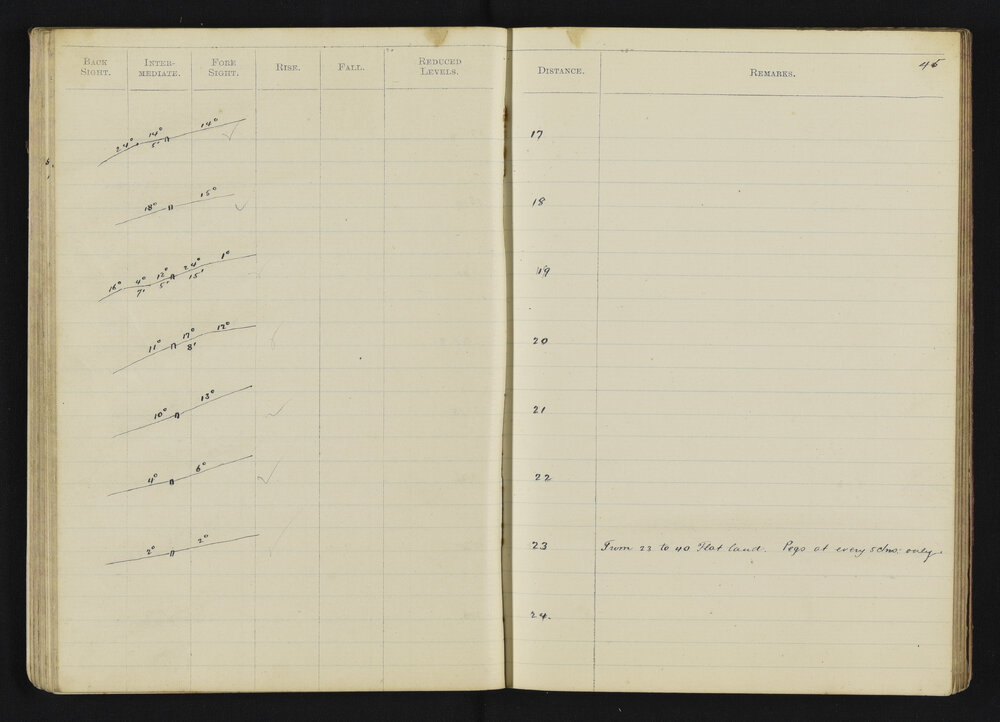 BACK SIGHT. INTER-MEDIATE. FORE SIGHT. RISE. FALL. REDUCED LEVELS. DISTANCE. REMARKS. 45
24° 14° 5' 14° 17
18° 15° 18
16° 4° 7' 12° 5' 24° 15' 1° 19
11° 17° 8' 12° 20
10° 13° 21
4° 6° 22
2° 2° 23 From 23 to 40 Flat land. Pegs at every 5 chns. only.
24.